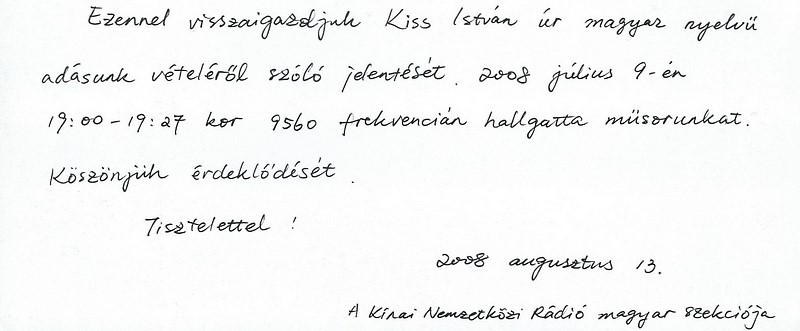 Ezennel visszaigazoljuk Kiss István úr magyar nyelvű
adásunk vételéről szóló jelentését. 2008 július 9-én
19:00-19:27 kor 9560 frekvencián hallgatta műsorunkat.
Köszönjük érdeklődését.
Tisztelettel!
2008 augusztus 13.
A Kínai Nemzetközi Rádió magyar szekciója